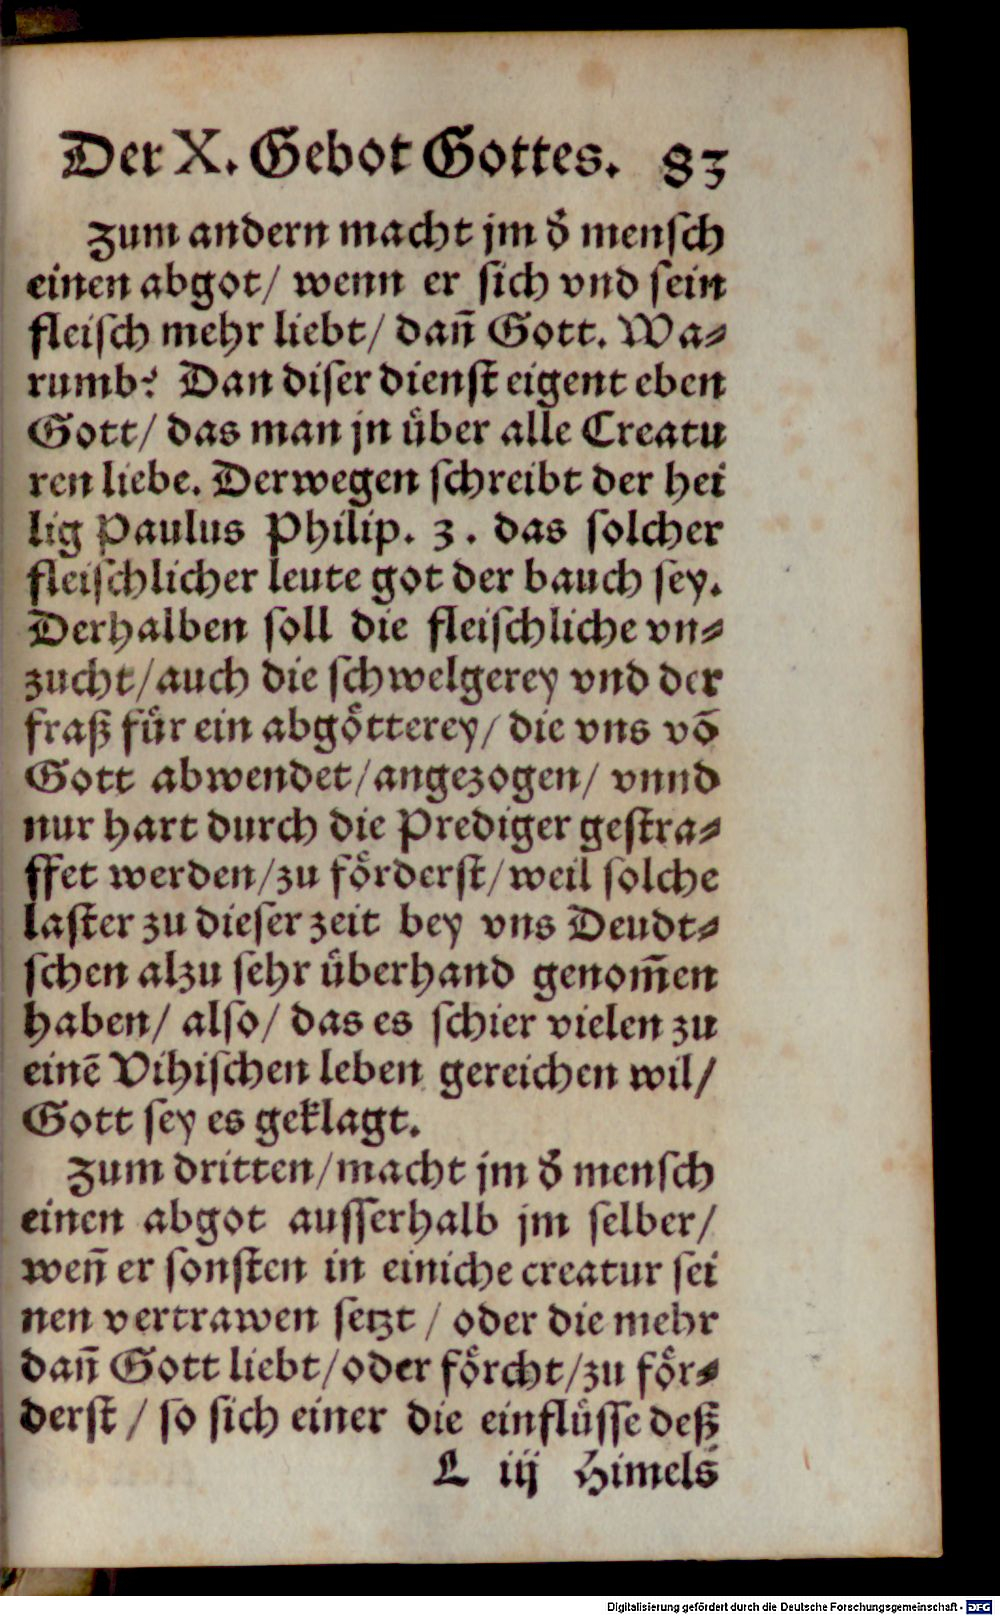 Der X. Gebot Gottes. 83
Zum andern macht jm d̕ mensch
einen abgot/ wenn er sich vnd sein
fleisch mehr liebt/ dañ Gott. Wa-
rumb? Dan diser dienst eigent eben
Gott/ das man jn uͤber alle Creatu
ren liebe. Derwegen schreibt der hei
lig Paulus Philip. 3. das solcher
fleischlicher leute got der bauch sey.
Derhalben soll die fleischliche vn-
zucht/ auch die schwelgerey vnd der
fraß fuͤr ein abgoͤtterey/ die vns vō
Gott abwendet/ angezogen/ vnnd
nur hart durch die Prediger gestra-
ffet werden/ zu foͤrderst/ weil solche
laster zu dieser zeit bey vns Deudt-
schen alzu sehr uͤberhand genom̄en
haben/ also/ das es schier vielen zu
einē Vihischen leben gereichen wil/
Gott sey es geklagt.
Zum dritten/ macht jm d̕ mensch
einen abgot ausserhalb jm selber/
weñ er sonsten in einiche creatur sei
nen vertrawen setzt / oder die mehr
dañ Gott liebt/ oder foͤrcht/ zu foͤr-
derst / so sich einer die einfluͤsse deß
L iij Himels
Digitalisierung gefördert durch die Deutsche Forschungsgemeinschaft - DFG